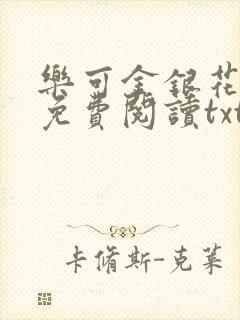 樂可金銀花
免費閱讀txt
卡脩斯-克萊